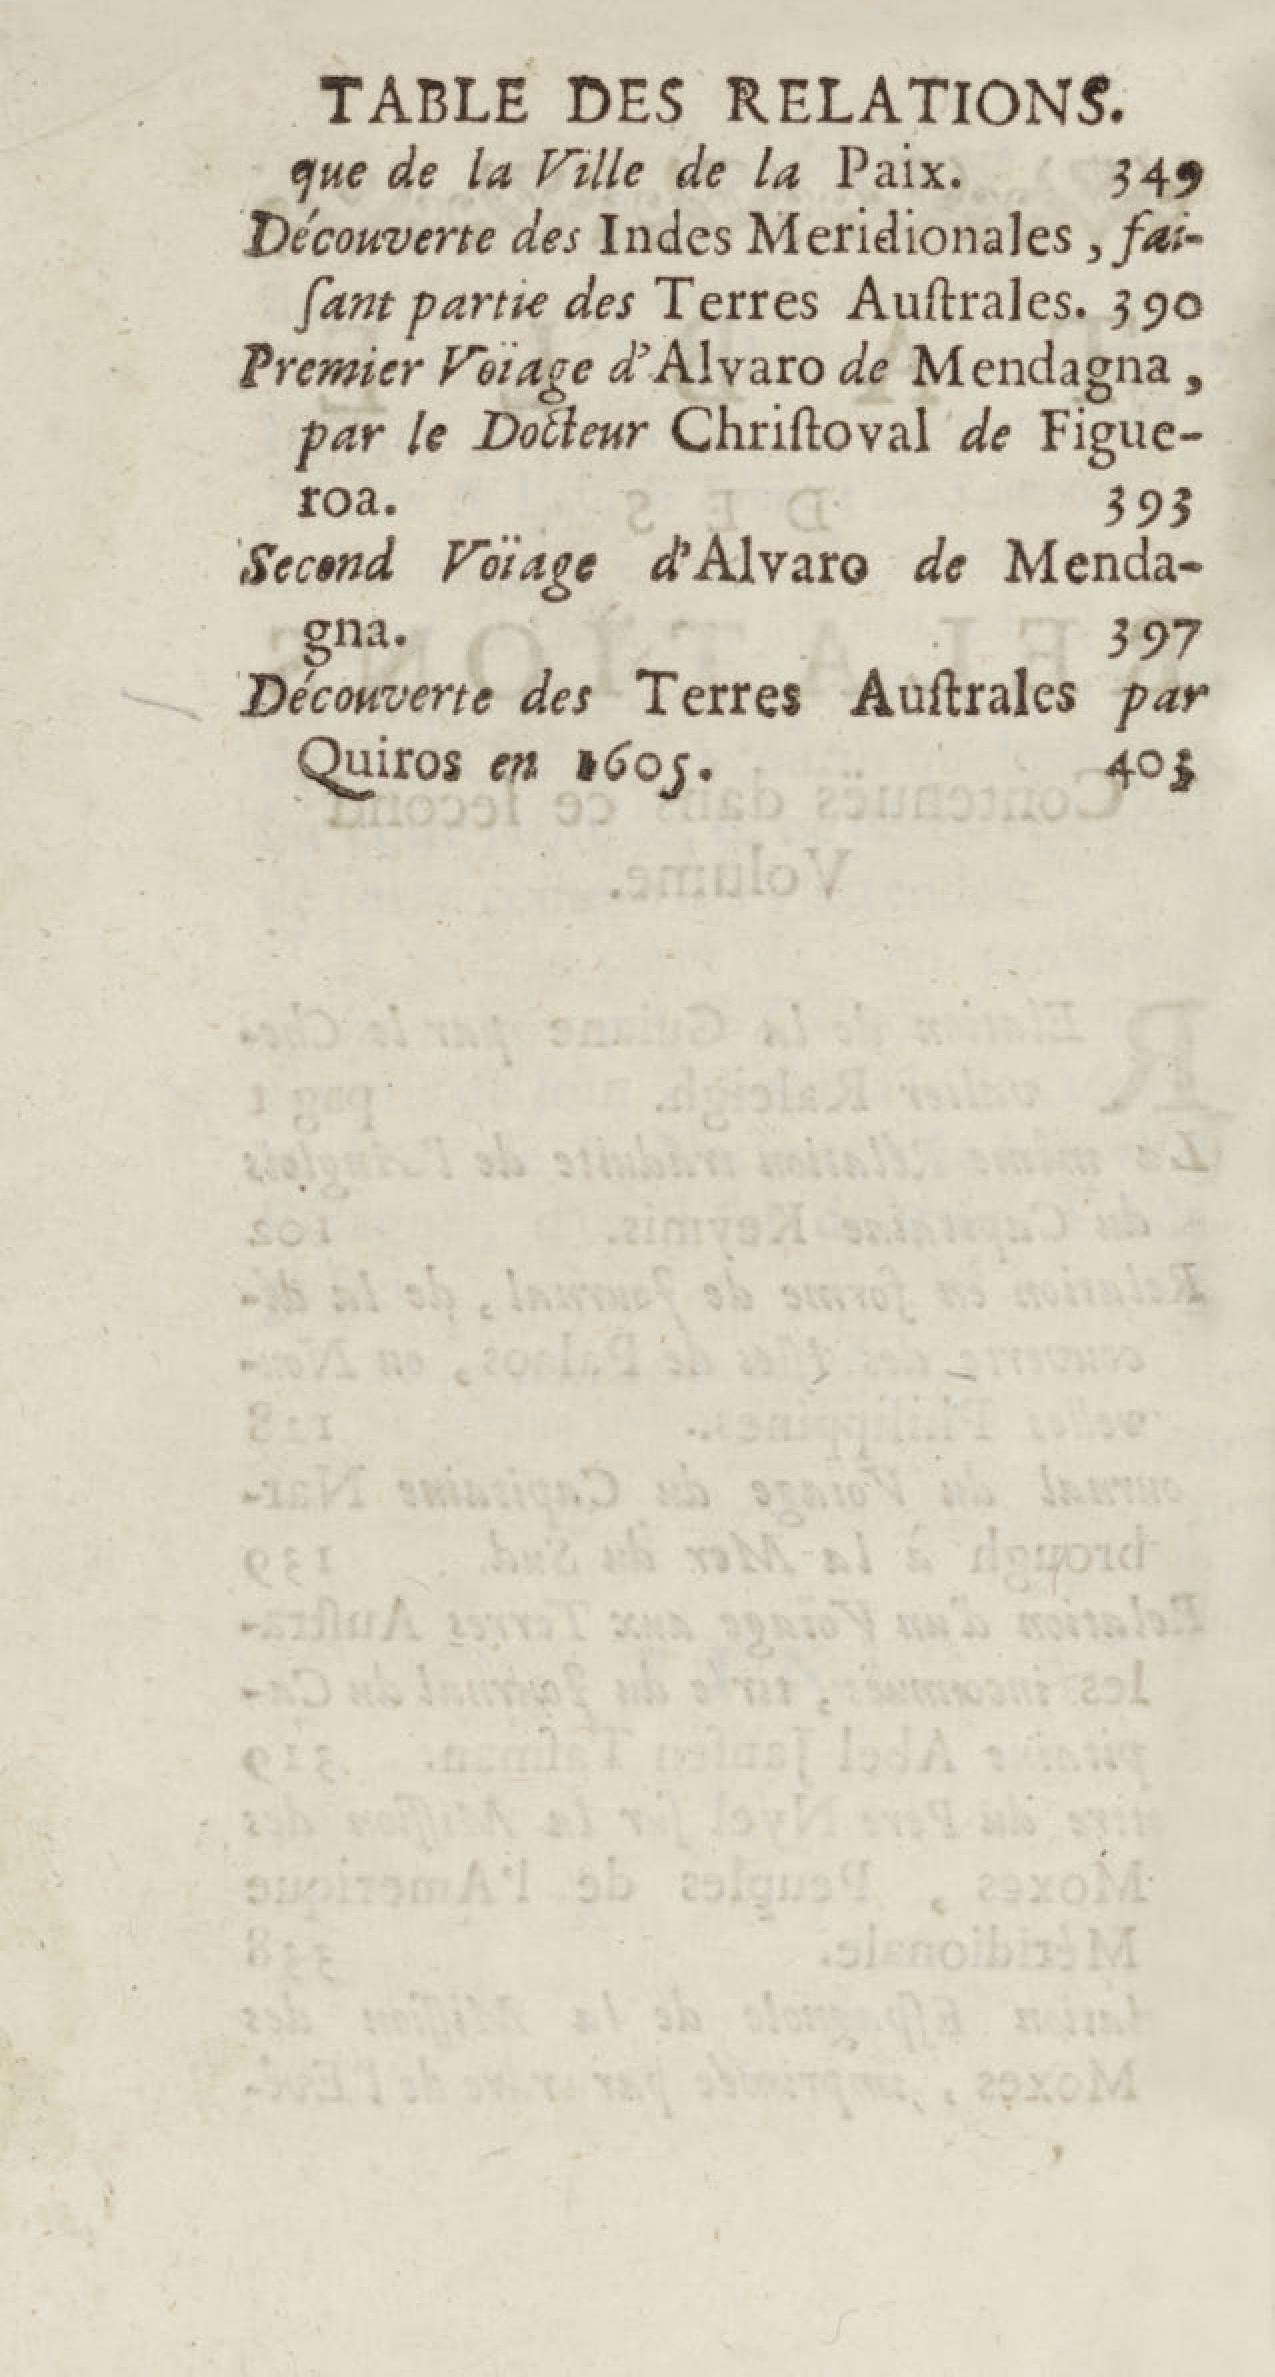 TABLE DES RELATIONS.
que de la Ville de la Paix. 349
Découverte des Indes Meridionales, fai-
ſant partie des Terres Auſtrales. 390
Premier Voïage d'Alvaro de Mendagna,
par le Docteur Chriſtoval de Figue-
roa. 393
Second Voïage d'Alvaro de Menda-
gna. 397
Découverte des Terres Auſtrales par
Quiros en 1605. 403